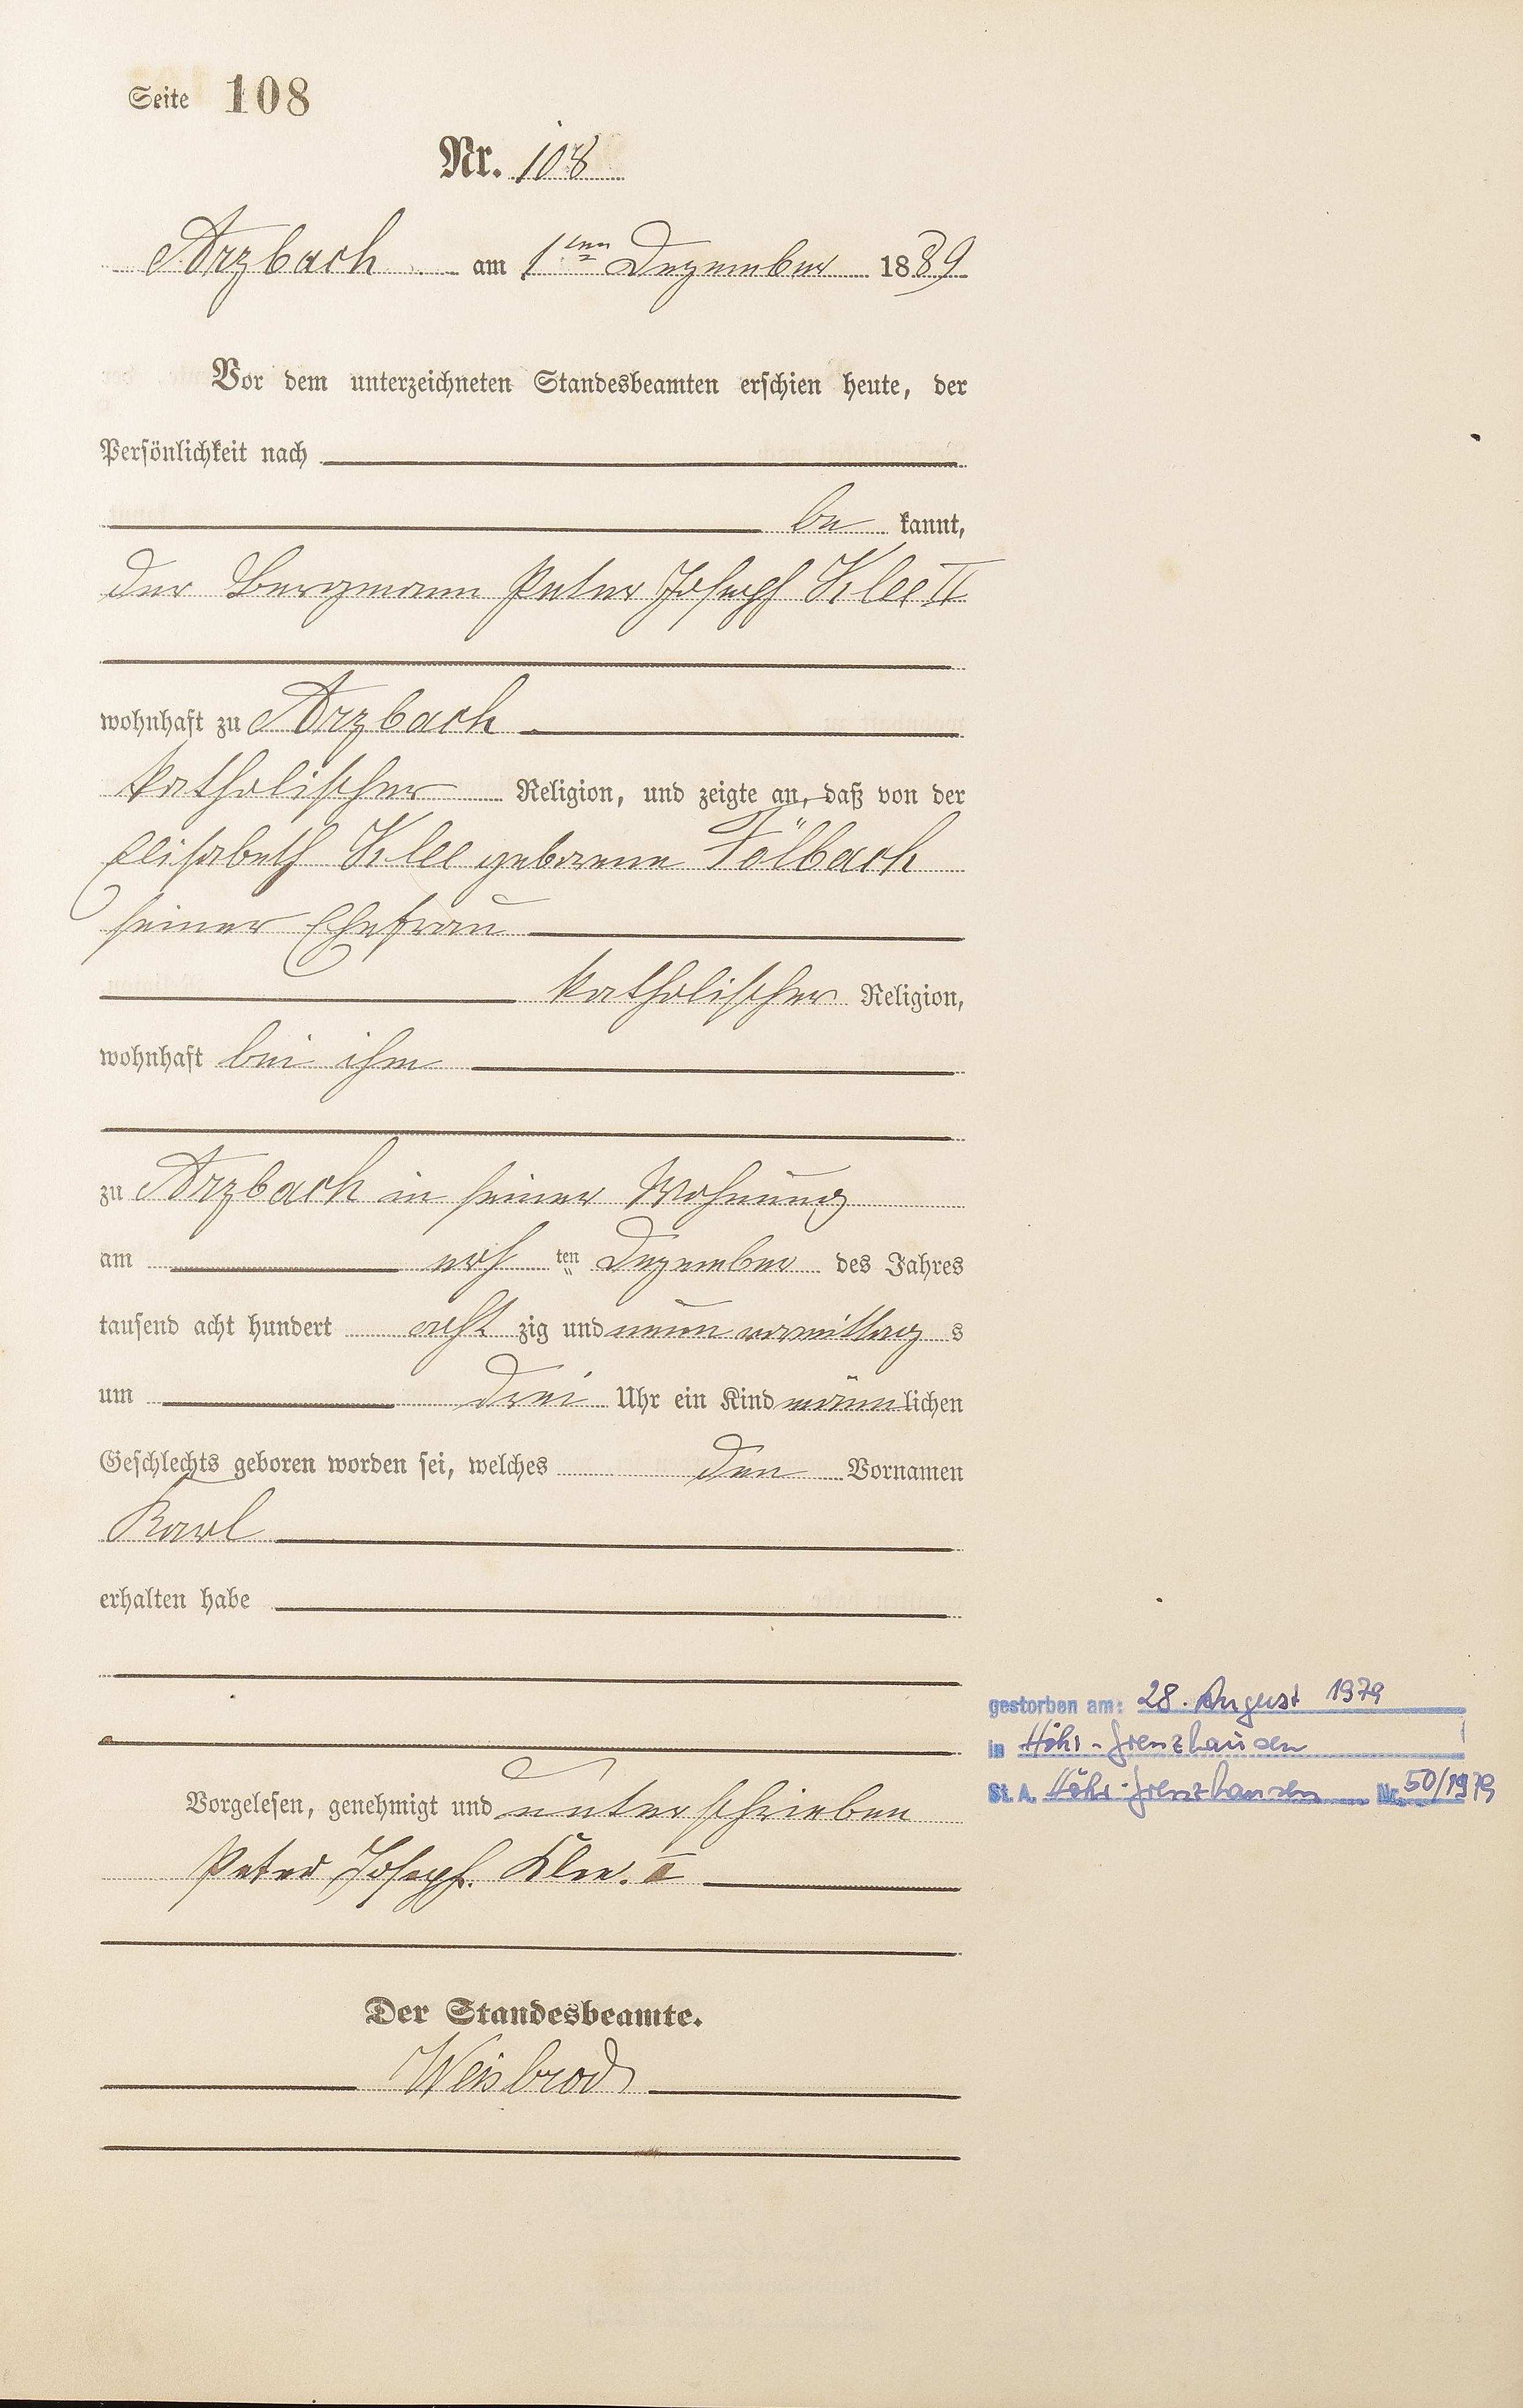 Seite 108
Nr. 108
Arzbach am 1ten Dezember 1889
Vor dem unterzeichneten Standesbeamten erschien heute, der
Persönlichkeit nach
be kannt,
der Bergmann Peter Joseph Klee II
wohnhaft zu Arzbach
katholischer Religion, und zeigte an, daß von der
Elisabeth Klee geborene Fölbach
seiner Ehefrau
katholischer Religion,
wohnhaft bei ihm
zu Arzbach in seiner Wohnung
am ersten Dezember des Jahres
tausend acht hundert acht zig und neun vormittag s
um drei Uhr ein Kind männlichen
Geschlechts geboren worden sei, welches den Vornamen
Karl
erhalten habe
gestorben am: 28. August 1979
in Höhr-Grenzhausen
St. A. Höhr-Grenzhausen Nr. 50/1979
Vorgelesen, genehmigt und unterschrieben
Peter Joseph. Klee. II
Der Standesbeamte.
Weisbrod